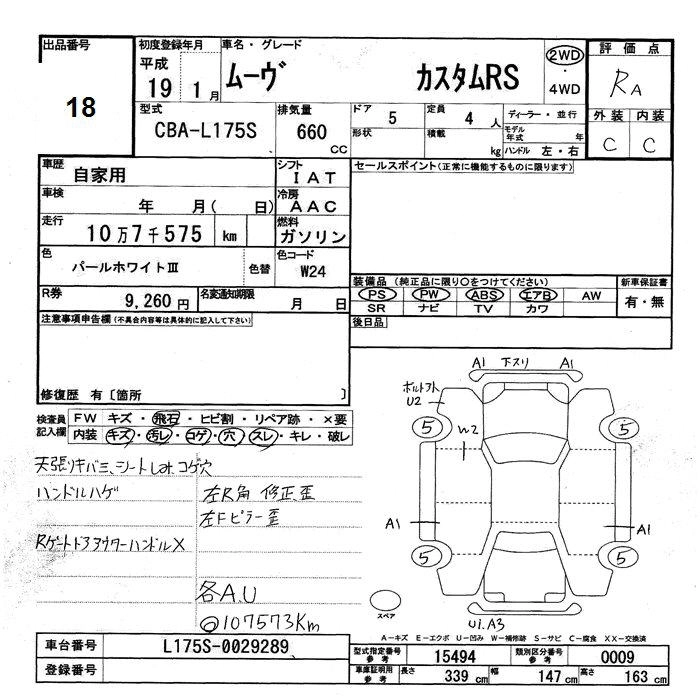 出品番号
18
初度登録年月
平成
19 1月
車名・グレード
ムーヴ カスタムRS
2WD
・
4WD
評価点
RA
外装 内装
C C
型式
CBA-L175S
排気量
660
CC
ドア
5
形状
定員
4 人
積載
kg
ディーラー・並行
モデル年式 年
ハンドル 左・右
車歴
自家用
シフト
IAT
車検
年 月( 日)
冷房
AAC
走行
10万7千575 km
燃料
ガソリン
色
パールホワイトⅢ
色替
色コード
W24
R券
9,260円
名変通知期限
月 日
セールスポイント(正常に機能するものに限ります)
装備品 (純正品に限り○をつけてください)
PS PW ABS エアB AW
SR ナビ TV カワ
新車保証書
有・無
後日品
注意事項申告欄(不具合内容等は具体的に記入して下さい)
修復歴 有〔箇所 〕
検査員記入欄
FW キズ・飛石・ヒビ割・リペア跡・×要
内装 キズ・汚レ・コゲ・穴・スレ・キレ・破レ
天張リキバミ、シートしみ、コゲ穴
ハンドルハゲ
左R角 修正歪
左Fピラー歪
Rゲートドアアウターハンドル×
各A.U
◎107573Km
A1 下スリ A1
ボルト
U2
5
W2
5
A1
A1
5
5
U1.A3
スペア
A-キズ E-エクボ U-凹み W-補修跡 S-サビ C-腐食 XX-交換済
車台番号
L175S-0029289
登録番号
型式指定番号
参考
15494
類別区分番号
参考
0009
車庫証明用
参考
長さ 339 cm 幅 147 cm 高さ 163 cm